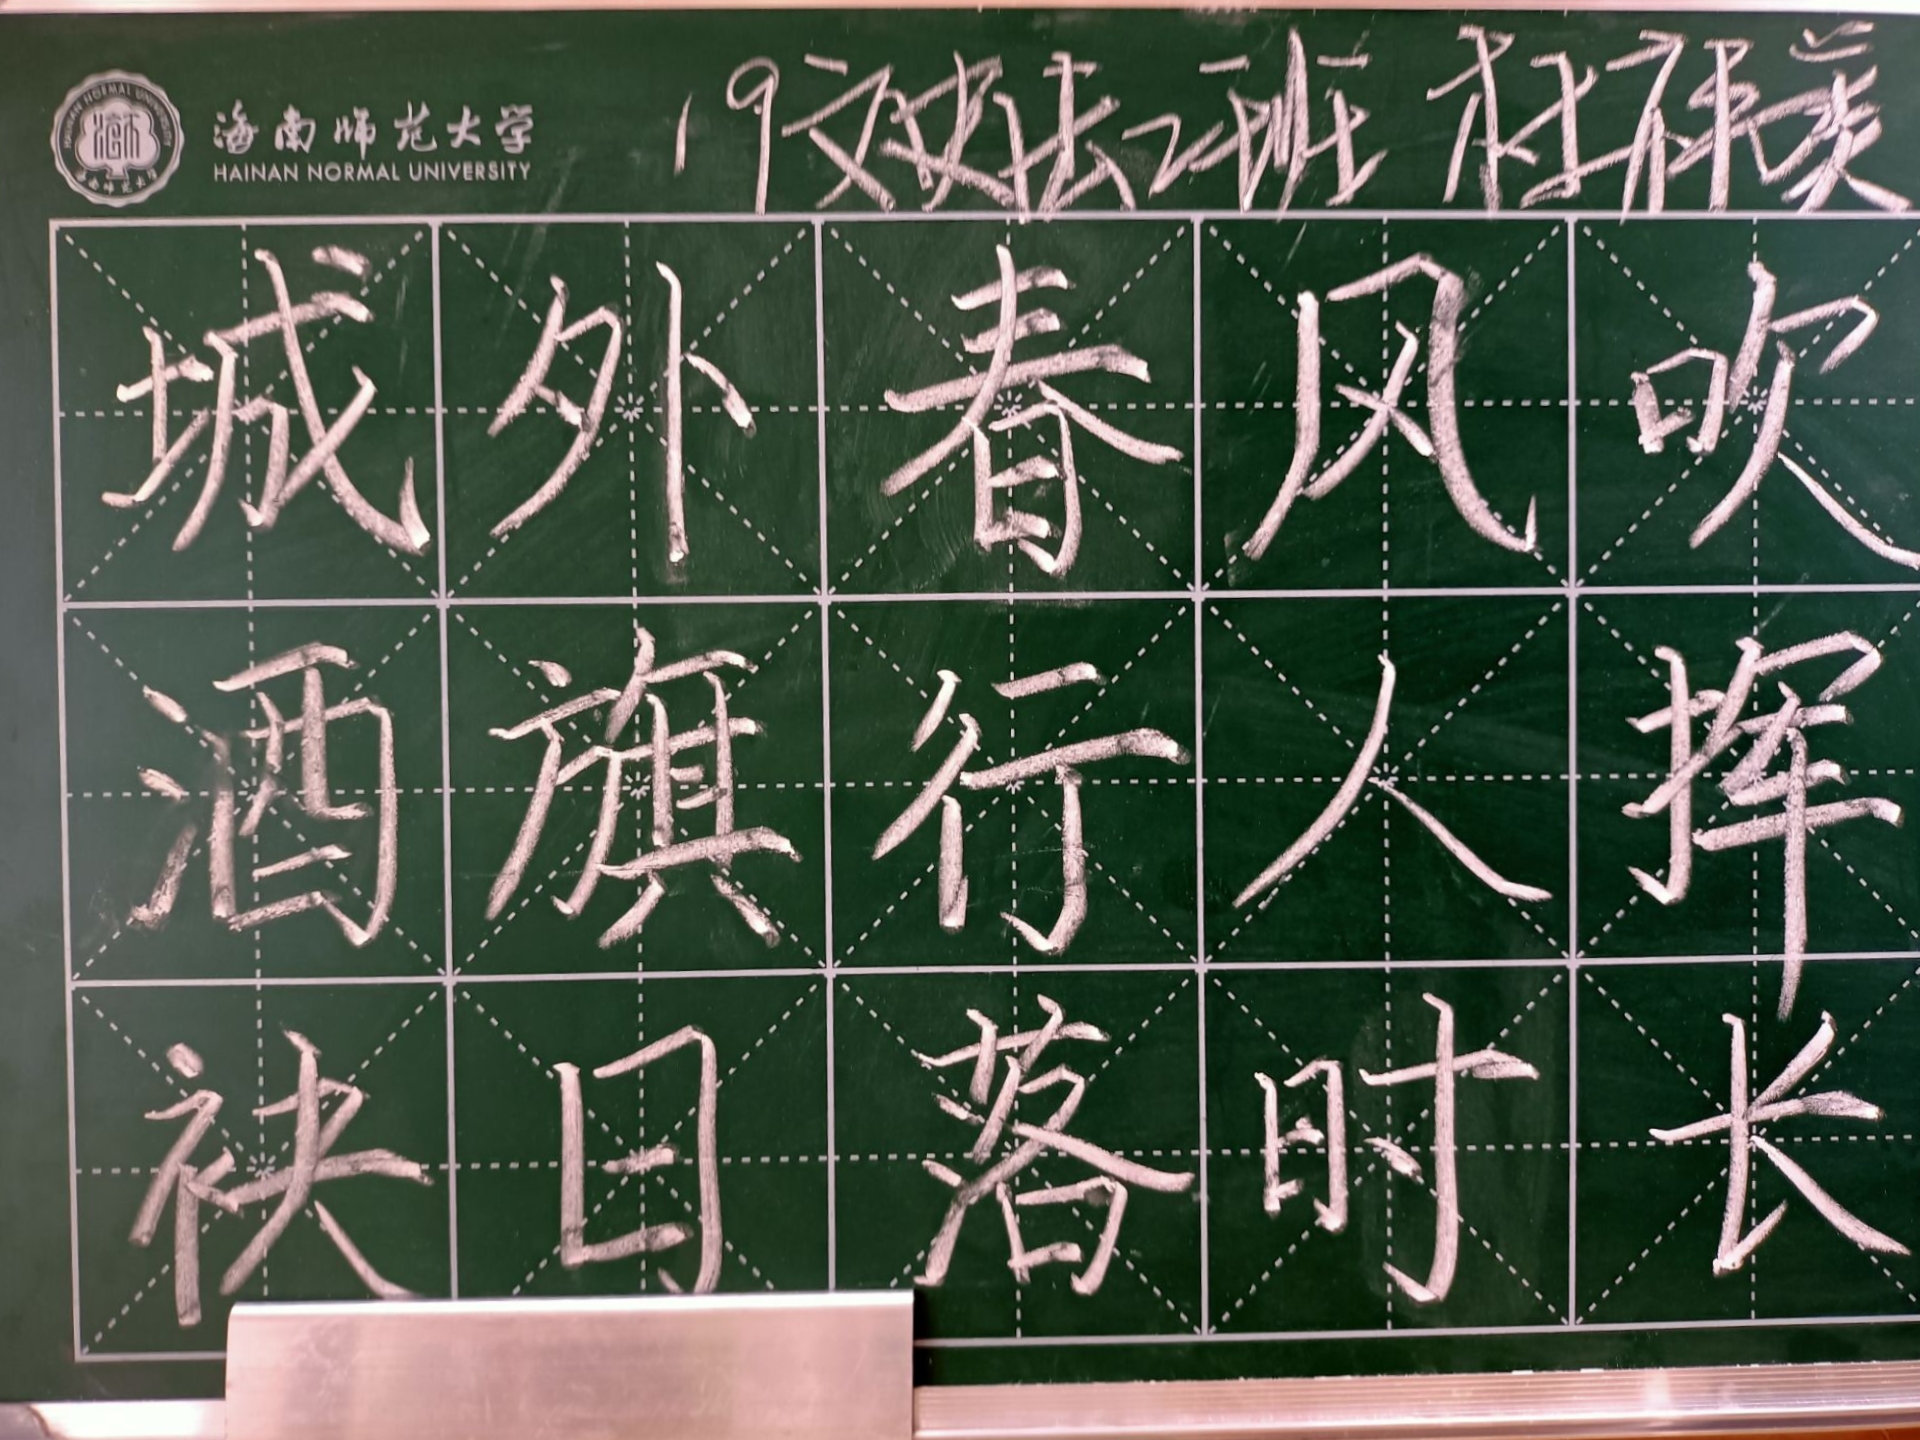 海南师范大学
HAINAN NORMAL UNIVERSITY
19文
2班
城外春风吹
酒旗行人挥
袂日落时长